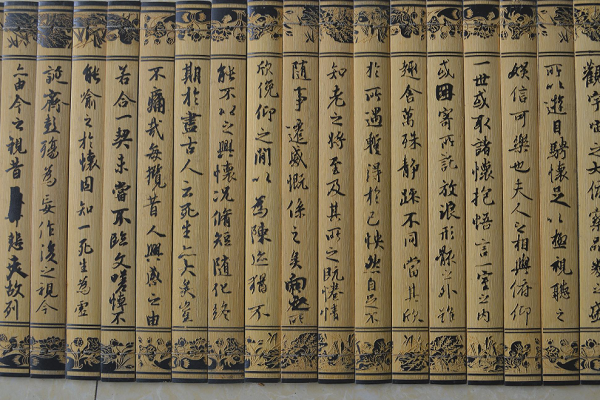 觀宇宙之大俯察品類之盛
所以遊目騁懷足以極視聽之
娛信可樂也夫人之相與俯仰
一世或取諸懷抱悟言一室之內
或因寄所託放浪形骸之外雖
趣舍萬殊靜躁不同當其欣
於所遇蹔得於己怏然自足不
知老之將至及其所之既惓情
隨事遷感慨係之矣向之所
欣俛仰之間以為陳迹猶不
能不以之興懷況脩短隨化終
期於盡古人云死生亦大矣豈
不痛哉每攬昔人興感之由
若合一契未嘗不臨文嗟悼不
能喻之於懷固知一死生為虛
誕齊彭殤為妄作後之視今
亦由今之視昔悲夫故列